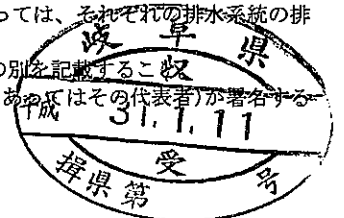 っては、それぞれの排水系統の排
の別を記載すること
あってはその代表者)が署名する
岐阜県
収
平成 31.1.11
受
揖県第 号